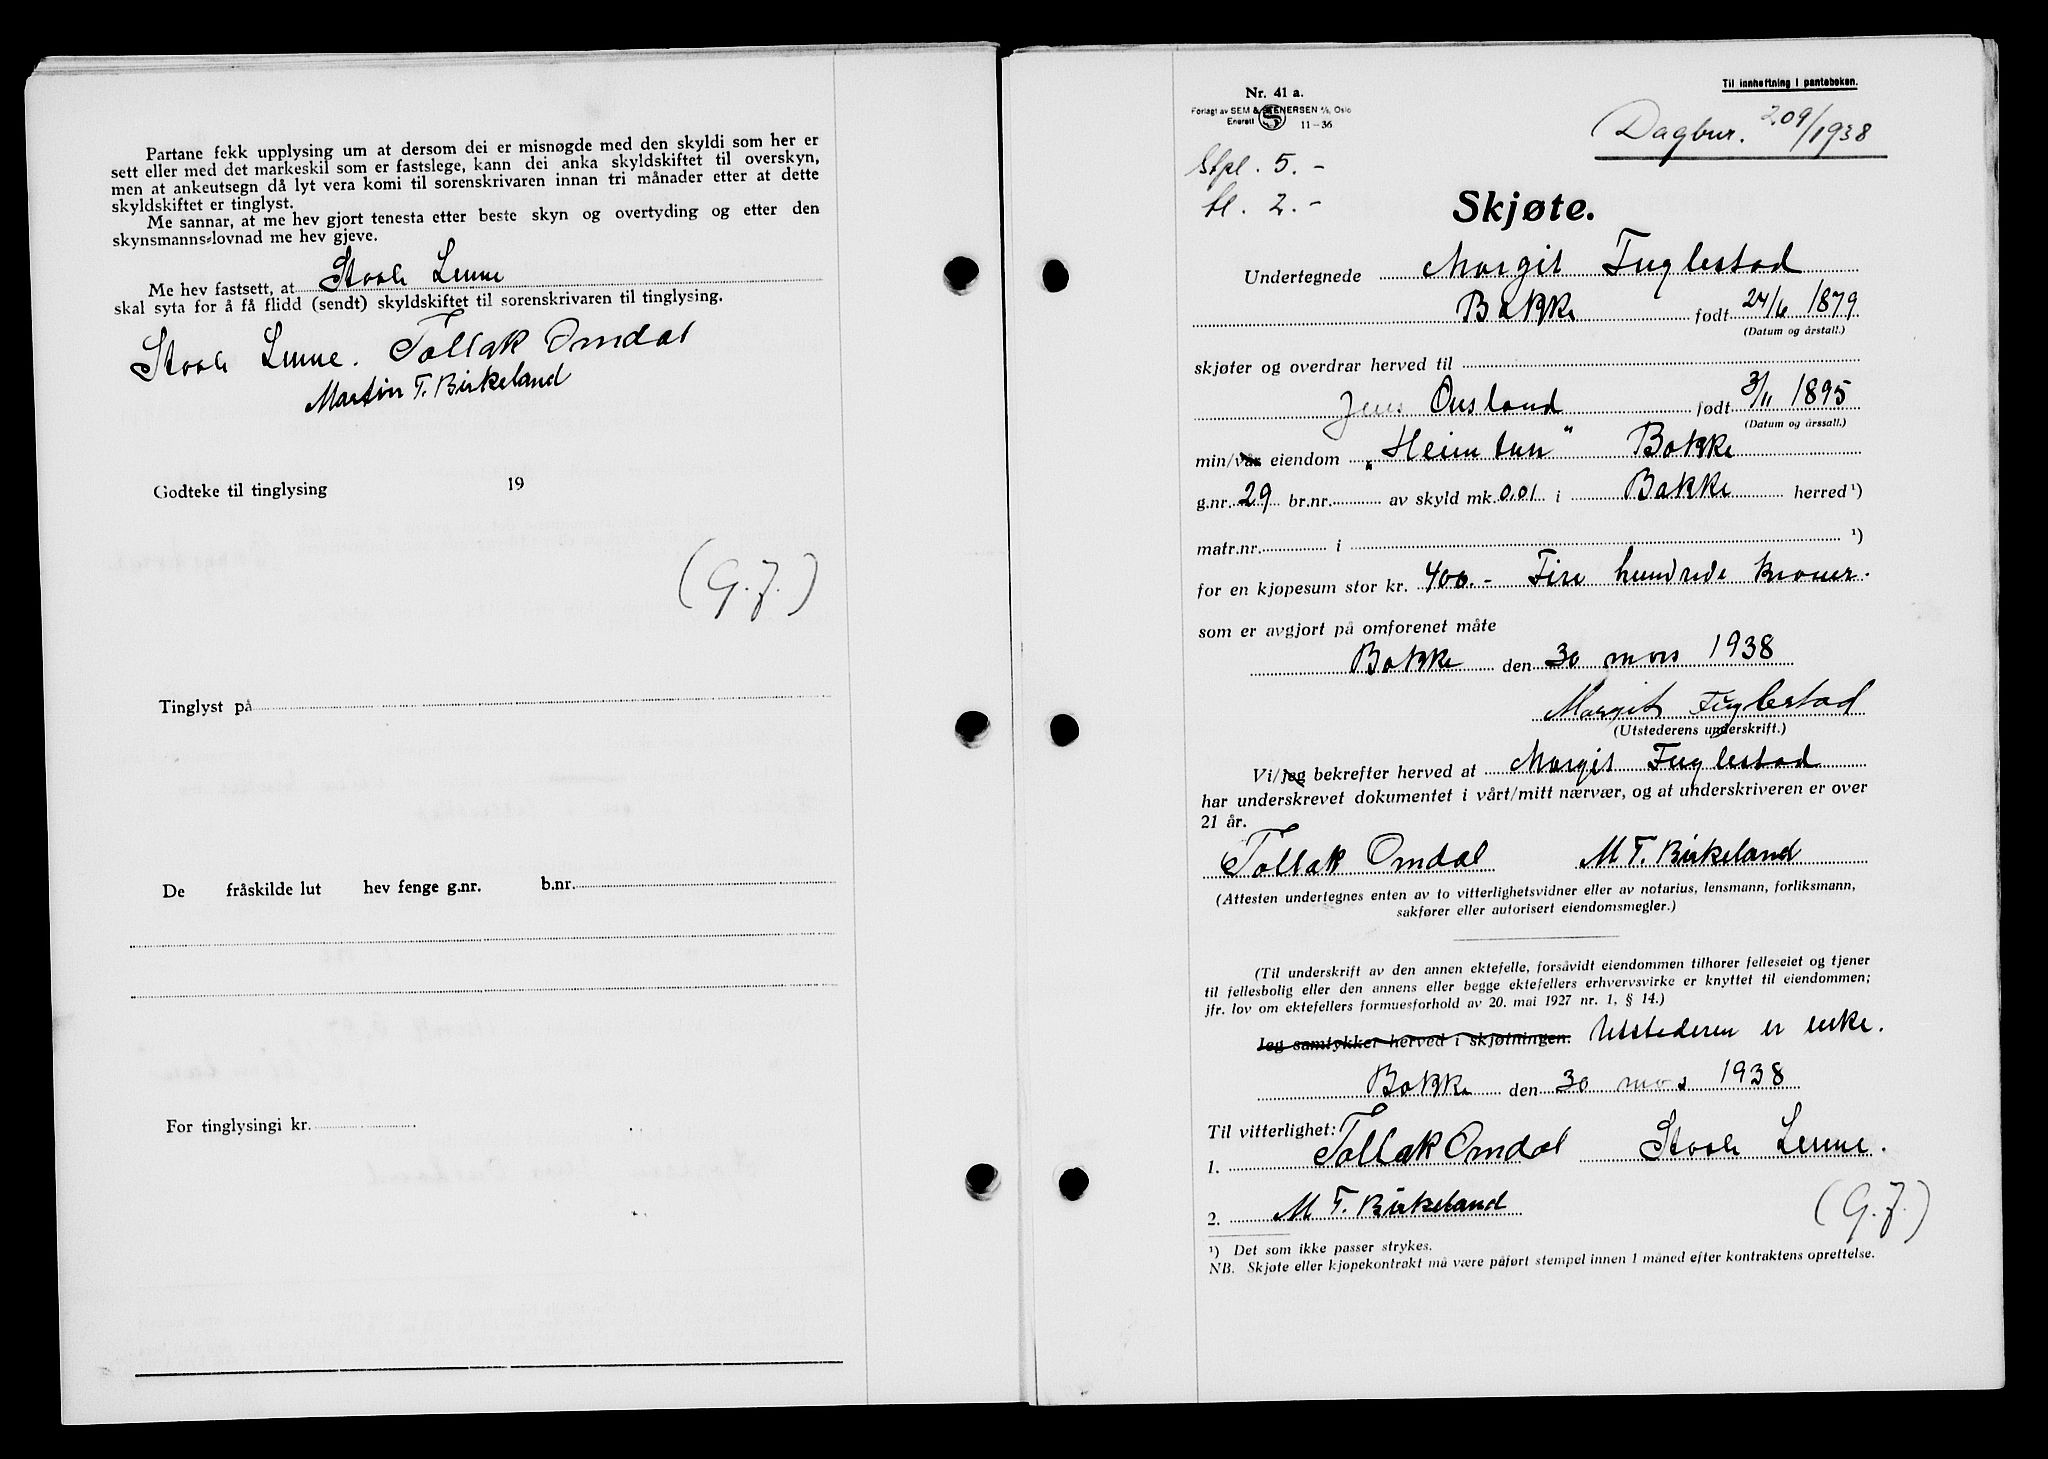 Partane fekk upplysing um at dersom dei er misnøgde med den skyldi som her er
sett eller med det markeskil som er fastslege, kann dei anka skyldskiftet til overskyn,
men at ankeutsegn då lyt vera komi til sorenskrivaren innan tri månader etter at dette
skyldskiftet er tinglyst.
Me sannar, at me hev gjort tenesta etter beste skyn og overtyding og etter den
skynsmanns-lovnad me hev gjeve.
Me hev fastsett, at
skal syta for å få flidd (sendt) skyldskiftet til sorenskrivaren til tinglysing.
Tollak Omdal
Martin T. Birkeland
Godteke til tinglysing 19
(G.J.)
Tinglyst på
De fråskilde lut hev fenge g.nr. b.nr.
For tinglysingi kr.
Til innheftning i panteboken.
Nr. 41 a.
Forlagt av SEM & STENERSEN A/S, Oslo
Enerett 11-36
Dagbnr. 209/1938
Stpl. 5.-
tl. 2.-
Skjøte.
Undertegnede Margit Fuglestad
Bakke født 24/6 1879
(Datum og årstall.)
skjøter og overdrar herved til
Jens Ousland født 3/11 1895
(Datum og årssall.)
min/vår eiendom „Heimtun" Bakke
g.nr. 29 br.nr. av skyld mk. 0.01 i Bakke herred ¹)
matr.nr. i ¹)
for en kjøpesum stor kr. 400.- Fire hundrede kroner.
som er avgjort på omforenet måte
Bakke den 30 mars 1938
Margit Fuglestad
(Utstederens underskrift.)
Vi/jeg bekrefter herved at Margit Fuglestad
har underskrevet dokumentet i vårt/mitt nærvær, og at underskriveren er over
21 år.
Tollak Omdal M T. Birkeland
(Attesten undertegnes enten av to vitterlighetsvidner eller av notarius, lensmann, forliksmann,
sakfører eller autorisert eiendomsmegler.)
(Til underskrift av den annen ektefelle, forsåvidt eiendommen tilhører felleseiet og tjener
til fellesbolig eller den annens eller begge ektefellers erhvervsvirke er knyttet til eiendommen;
jfr. lov om ektefellers formuesforhold av 20. mai 1927 nr. 1, § 14.)
Jeg samtykker herved i skjøtningen. Utstederen er enke.
Bakke den 30 mars 1938
Til vitterlighet:
1. Tollak Omdal
2. M T. Birkeland
(G.J.)
¹) Det som ikke passer strykes.
NB. Skjøte eller kjøpekontrakt må være påført stempel innen 1 måned efter kontraktens oprettelse.